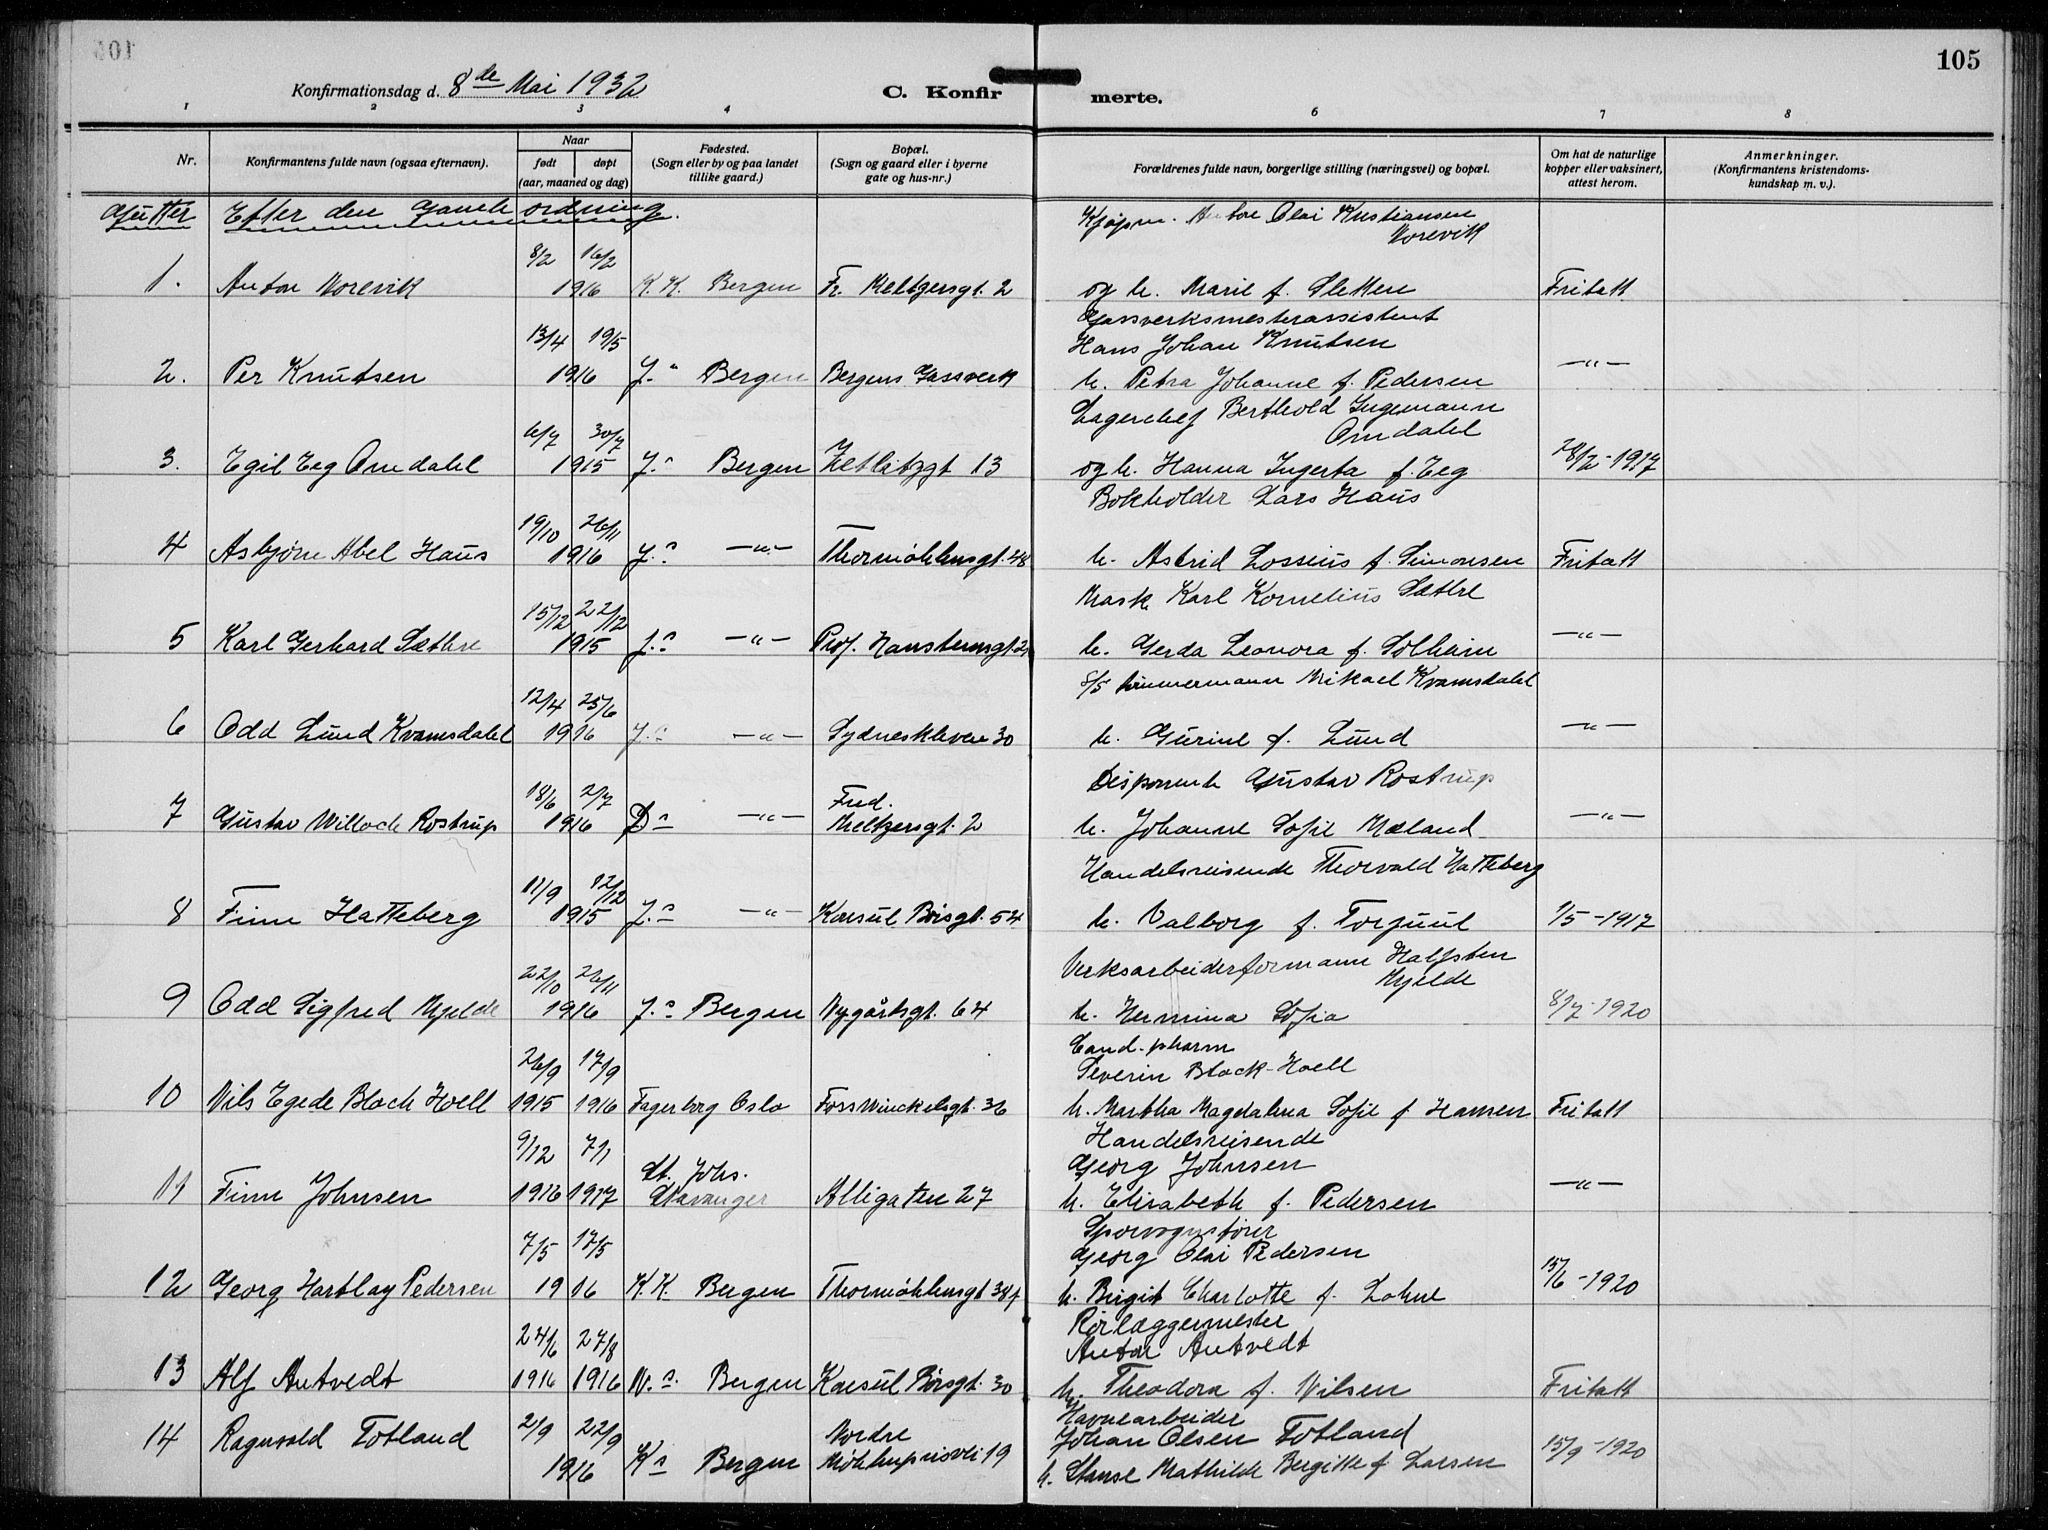 105
Konfirmationsdag d. 8de Mai 1932
C. Konfir merte.
1 2 3 4 6 7 8
Nr. Konfirmantens fulde navn (ogsaa efternavn). Naar født døpt (aar, maaned og dag) Fødested. (Sogn eller by og paa landet tillike gaard.) Bopæl. (Sogn og gaard eller i byerne gate og hus-nr.) Forældrenes fulde navn, borgerlige stilling (næringsvei) og bopæl. Om hat de naturlige kopper eller vaksinert, attest herom. Anmerkninger. (Konfirmantens kristendoms-kundskap m. v.).
Gutter Efter den gamle ordning.
Kjøpm. Anton Olai Kristiansen
Norevik
8/2 16/2
1. Anton Norevik 1916 K. K. Bergen Fr. Meltzersgt. 2 og h. Marie f. Sletten Fritatt
Gassverksmesterassistent
13/4 19/5 Hans Johan Knutsen
2. Per Knutsen 1916 J. " Bergen Bergens Gassverk h. Petra Johanne f. Pedersen —"—
Lagerchef Berthold Ingemann
6/7 30/7 Omdahl
3. Egil Eeg Omdahl 1915 J. " Bergen Zetlitzgt 13 og h. Hanna Ingerta f. Eeg 28/2-1917
Bokholder Lars Haus
19/10 26/11
4 Asbjørn Abel Haus 1916 J. " —"— Thormøhlensgt. 48 h. Astrid Lossius f. Simonsen Fritatt
Mask Karl Kornelius Sæthre
15/12 22/12
5 Karl Gerhard Sæthre 1915 J. " —"— Prof. Hansteensgt. h. Gerda Leonora f. Solheim —"—
S/S tømmermann Mikael Kvamsdahl
12/4 25/6
6 Odd Lund Kvamsdahl 1916 J. " —"— Sydneskleven 30 h. Gurine f. Lund —"—
Disponent Gustav Rostrup
18/6 2/7 Fred.
7 Gustav Willoch Rostrup 1916 D " —"— Meltzersgt. 2 h. Johanne Sofie Mæland —"—
Handelsreisende Thorvald Hatteberg
11/9 12/12
8 Finn Hatteberg 1915 J. " —"— Konsul Børsgt. 54 h. Valborg f. Torjuul 1/5-1917
Verksarbeiderformann Halfsten
22/10 26/11 Mjelde
9 Odd Sigfred Mjelde 1916 J. " Bergen Nygårdsgt. 64 h. Hermina Sofia 8/7-1920
Cand. pharm
26/9 17/9 Severin Block-Hoell
10 Nils Egede Bloch Hoell 1915 1916 Fagerborg Oslo Fosswinckelsgt. 36 h. Martha Magdalena Sofie f Hansen Fritatt
Handelsreisende
9/12 7/1 Georg Johnsen
St. Johs.
11 Finn Johnsen 1916 1917 Stavanger Allegaten 27 h. Elisabeth f. Pedersen —"—
Sporvognsfører
7/5 17/5 Georg Olai Pedersen
12 Georg Hartlay Pedersen 1916 K. K. Bergen Thormøhlensgt 38 h. Birgit Charlotte f. Lohne 15/6-1920
Rørlæggermester
24/6 27/8 Anton Antvedt
13 Alf Antvedt 1916 1916 N. " Bergen Konsul Børsgt. 30 h. Theodora f. Nilsen Fritatt
Havnearbeider
2/9 22/9 Nordre Johan Olsen Totland
14 Ragnvald Totland 1916 K " Bergen Møhlenprisvei 19 h. Mathilde Bergitte f Larsen 15/9-1920